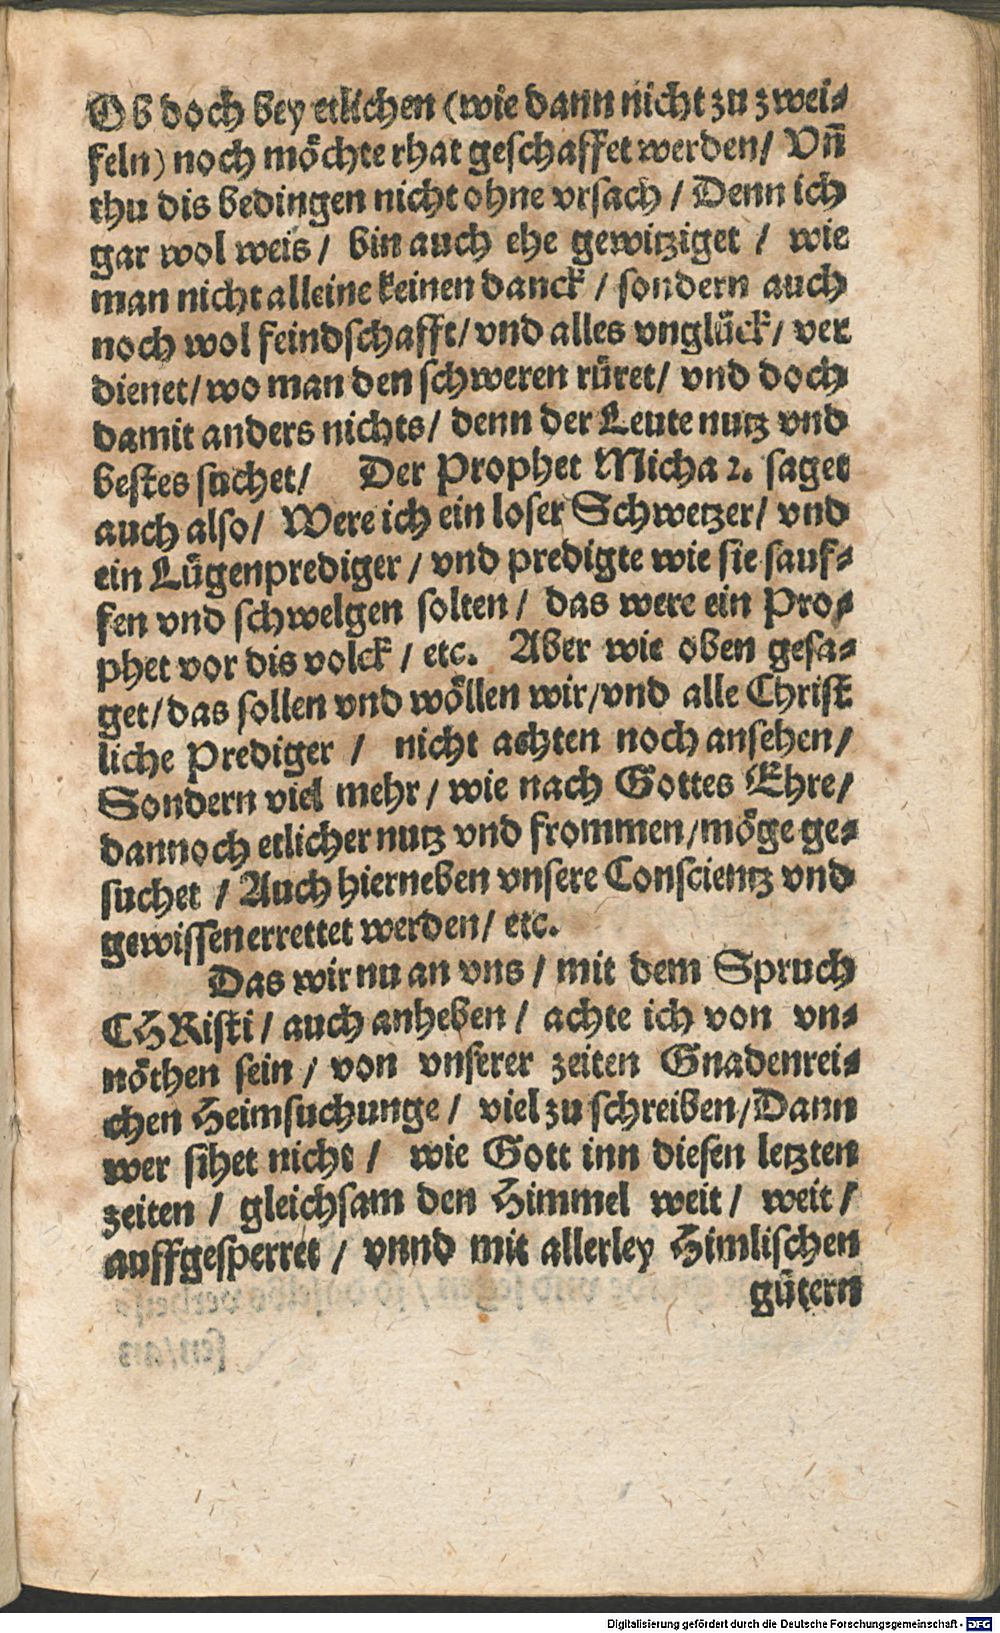 Ob doch bey etlichen (wie dann nicht zu zwei-
feln) noch möchte rhat geschaffet werden/ Vñ
thu dis bedingen nicht ohne vrsach / Denn ich
gar wol weis / bin auch ehe gewitziget / wie
man nicht alleine keinen danck / sondern auch
noch wol feindschafft/ vnd alles vnglück/ ver
dienet/ wo man den schweren rüret/ vnd doch
damit anders nichts/ denn der Leute nutz vnd
bestes suchet/ Der Prophet Micha 2. saget
auch also/ Were ich ein loser Schwetzer/ vnd
ein Lügenprediger / vnd predigte wie sie sauf-
fen vnd schwelgen solten / das were ein Pro-
phet vor dis volck / etc. Aber wie oben gesa-
get/ das sollen vnd wöllen wir/ vnd alle Christ
liche Prediger / nicht achten noch ansehen/
Sondern viel mehr / wie nach Gottes Ehre/
dannoch etlicher nutz vnd frommen/ möge ge-
suchet / Auch hierneben vnsere Conscientz vnd
gewissen errettet werden/ etc.
Das wir nu an vns / mit dem Spruch
CHRisti / auch anheben / achte ich von vn-
nöthen sein / von vnserer zeiten Gnadenrei-
chen Heimsuchunge / viel zu schreiben/ Dann
wer sihet nicht / wie Gott inn diesen letzten
zeiten / gleichsam den Himmel weit / weit /
auffgesperret / vnnd mit allerley Himlischen
gütern
Digitalisierung gefördert durch die Deutsche Forschungsgemeinschaft - DFG